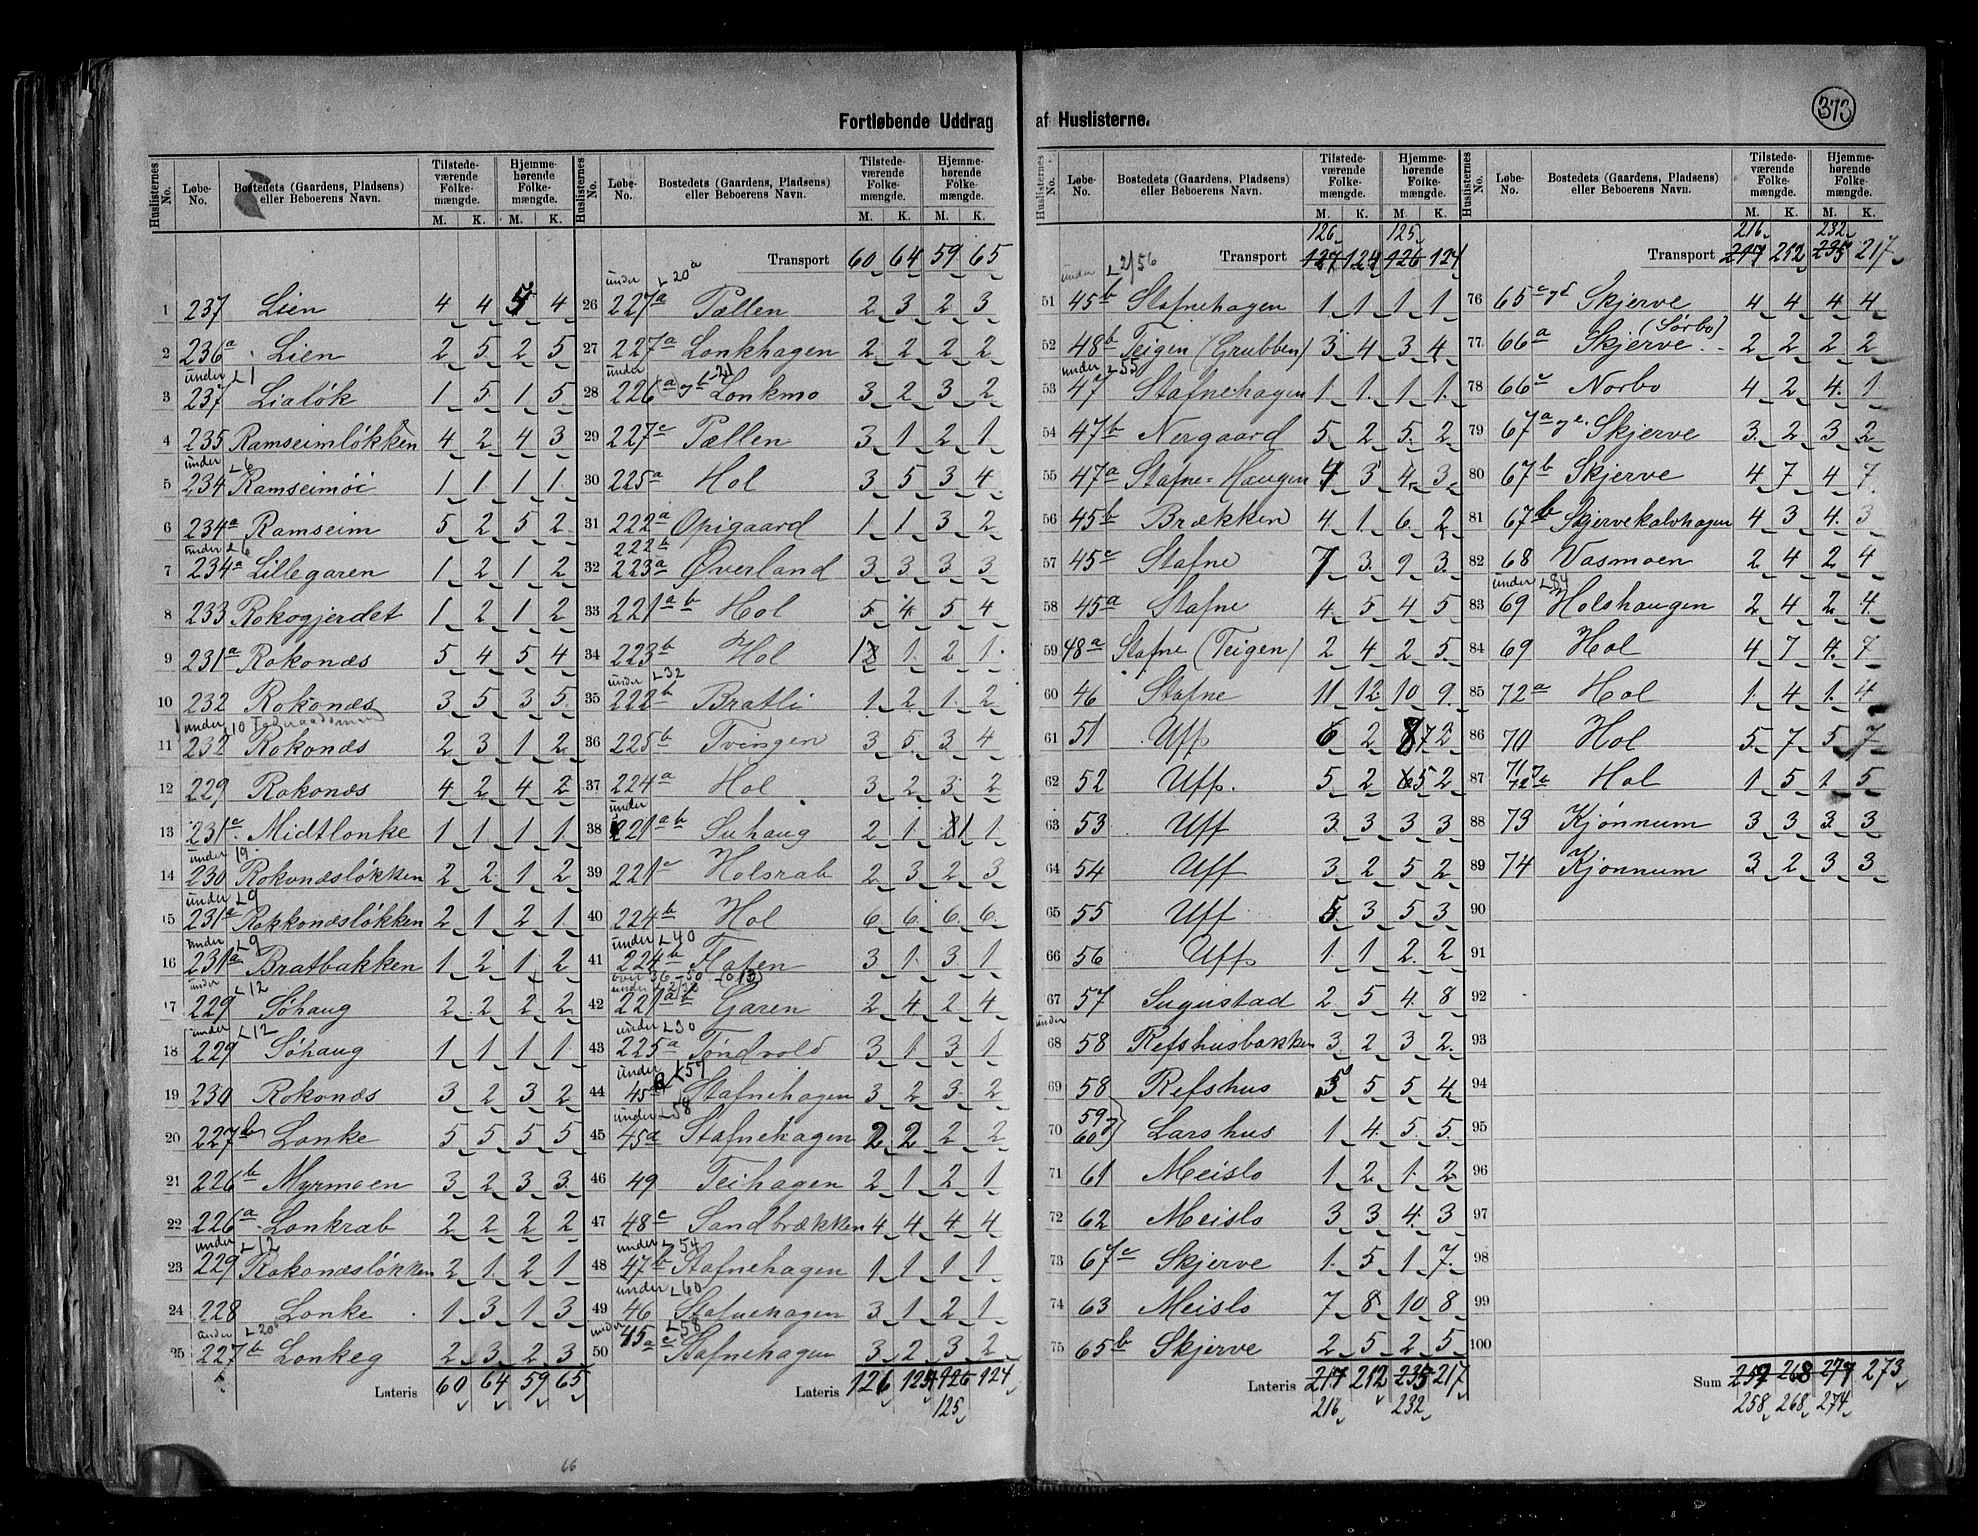 373
Fortløbende Uddrag af Huslisterne.
Huslisternes No. Løbe-No. Bostedets (Gaardens, Pladsens) eller Beboerens Navn. Tilstedeværende Folkemængde. M. K. Hjemmehørende Folkemængde. M. K.
1 237 Lien 4 4 5 4
2 236a Lien 2 5 2 5
3 under L 1 237 Lialøk 1 5 1 5
4 235 Ramseimløkken 4 2 4 3
5 under L 6 234 Ramseimøi 1 1 1 1
6 234a Ramseim 5 2 5 2
7 under L 6 234a Lillegaren 1 2 1 2
8 233 Rokogjerdet 1 2 1 2
9 231a Rokonæs 5 4 5 4
10 232 Rokonæs 3 5 3 5
11 under L 10 232 Rokonæs 2 3 1 2
12 229 Rokonæs 4 2 4 2
13 231c Midtlonke 1 1 1 1
14 under 19 230 Rokonæsløkken 2 2 1 2
15 under L 9 231a Rokkonæsløkken 2 1 2 1
16 under L 9 231a Bratbakken 1 2 1 2
17 under L 12 229 Søhaug 2 2 2 2
18 under L 12 229 Søhaug 1 1 1 1
19 230 Rokonæs 3 2 3 2
20 227b Lonke 5 5 5 5
21 226b Myrmoen 3 2 3 3
22 226a Lonkrab 2 2 2 2
23 under L 12 229 Rokonæsløkken 2 1 2 1
24 228 Lonke 1 3 1 3
25 under L 20 227b Lonkeg 2 3 2 3
Lateris 60 64 59 65
Huslisternes No. Løbe-No. Bostedets (Gaardens, Pladsens) eller Beboerens Navn. Tilstedeværende Folkemængde. M. K. Hjemmehørende Folkemængde. M. K.
Transport 60 64 59 65
26 under L 20a 227a Pællen 2 3 2 3
27 227a Lonkhagen 2 2 2 2
28 under L 21 226 a) og b Lonkmo 3 2 3 2
29 227c Pællen 3 1 2 1
30 225a Hol 3 5 3 4
31 222a Opigaard 1 1 3 2
32 222b 223a Øverland 3 3 3 3
33 221a b Hol 5 4 5 4
34 223b Hol 1 1 2 1
35 under L 32 222b Bratli 1 2 1 2
36 225b Tvingen 3 5 3 4
37 224a Hol 3 2 3 2
38 under 221ab Suhaug 2 1 1 1
39 221c Holsrab 2 3 2 3
40 224b Hol 6 6 6 6
41 under L 40 224b Flaten 3 1 3 1
42 under 221ab Garen 2 4 2 4
43 under L 30 225a Tøndvold 3 1 3 1
44 under L 57 45 Stafnehagen 3 2 3 2
45 under L 58 45a Stafnehagen 2 2 2 2
46 49 Teihagen 2 1 2 1
47 48c Sandbrækken 4 4 4 4
48 under L 54 47b Stafnehagen 1 1 1 1
49 under L 60 46 Stafnehagen 3 1 2 1
50 under L 58 45a Stafnehagen 3 2 3 2
Lateris 126 124 126 124
125
66
Huslisternes No. Løbe-No. Bostedets (Gaardens, Pladsens) eller Beboerens Navn. Tilstedeværende Folkemængde. M. K. Hjemmehørende Folkemængde. M. K.
126 125
Transport 127 124 126 124
51 under L 2/56 45b Stafnehagen 1 1 1 1
52 48b Teigen (Grubben) 3 4 3 4
53 under L 55 47 Stafnehagen 1 1 1 1
54 47b Nergaard 5 2 5 2
55 47a Stafne=Haugen 4 3 4 3
56 45b Brækken 4 1 6 2
57 45c Stafne 7 3 9 3
58 45a Stafne 4 5 4 5
59 48a Stafne (Teigen) 2 4 2 5
60 46 Stafne 11 12 10 9
61 51 Uff 6 2 87 2
62 52 Uff. 5 2 5 2
63 53 Uff 3 3 3 3
64 54 Uff 3 2 5 2
65 55 Uff 5 3 5 3
66 56 Uff 1 1 2 2
67 57 Sugustad 2 5 4 8
68 under 58 Refshusbakken 3 2 3 2
69 58 Refshus 3 5 5 4
70 59 60 Larshus 1 4 5 5
71 61 Meislo 1 2 1 2
72 62 Meislo 3 3 4 3
73 67c Skjerve 1 5 1 7
74 63 Meislo 7 8 10 8
75 65b Skjerve 2 5 2 5
Lateris 217 212 235 217
216 232
Huslisternes No. Løbe-No. Bostedets (Gaardens, Pladsens) eller Beboerens Navn. Tilstedeværende Folkemængde. M. K. Hjemmehørende Folkemængde. M. K.
216 232
Transport 217 212 235 217
76 65c og d Skjerve 4 4 4 4
77 66a Skjerve (Sørbo) 2 2 2 2
78 66c Norbo 4 2 4 1
79 67a og e Skjerve 3 2 3 2
80 67b Skjerve 4 7 4 7
81 67b Skjervekalvhagen 4 3 4 3
82 68 Vasmoen 2 4 2 4
83 under L 84 69 Holshaugen 2 4 2 4
84 69 Hol 4 7 4 7
85 72a Hol 1 4 1 4
86 70 Hol 5 7 5 7
87 71 72b Hol 1 5 1 5
88 73 Kjønnum 3 3 3 3
89 74 Kjønnum 3 2 3 3
90
91
92
93
94
95
96
97
98
99
100
Sum 257 268 277 273
258 268 274